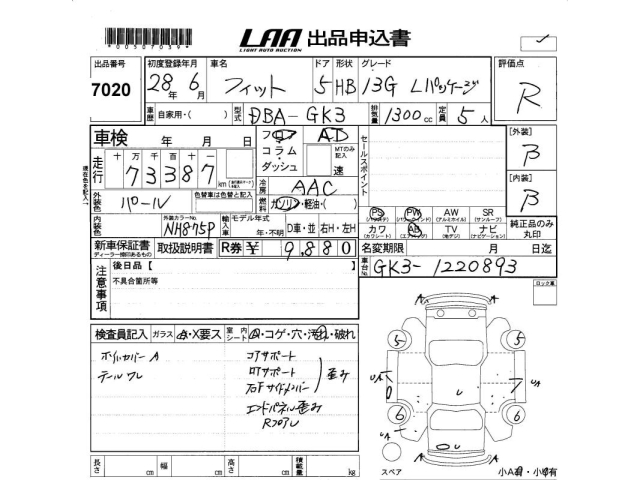 *0050703​94*
LAA 出品申込書
LIGHT AUTO AUCTION
出品番号
7020
初度登録年月
28年 6月
車名
フィット
ドア 形状
5 HB
グレード
13G Lパッケージ
評価点
R
車歴
自家用・( )
型式
DBA-GK3
排気量
1300cc
定員
5人
車検 年 月 日
フロア AT
コラム・ダッシュ
MTのみ記入
速
セールスポイント
[外装]
B
[内装]
B
走行
十 万 千 百 十 一
7 3 3 8 7
km
冷房
AAC
外装色
パール
色替車は色替と記入
燃料
ガソリン・軽油・( )
PS PW AW SR
(パワステ) (パワーウインド) (アルミホイル) (サンルーフ)
カワ AB TV ナビ
(カワシート) (エアバッグ) (地デジ) (ナビゲーション)
純正品のみ丸印
内装色
外装カラーNo.
NH875P
輸入車
モデル年式
年・不明
D車・並
右H・左H
新車保証書
ディーラー様印あるもの
取扱説明書
R券 ¥ 9,880
名変期限 月 日迄
注意事項
後日品【 】
不具合箇所等
車台No.
GK3-1220893
ロック車
検査員記入
ガラス A・X要ス
室内シート A・コゲ・穴・汚れ・破れ
ホイルカバーA
テールワレ
コアサポート
RFサポート
右Fサイドメンバー
歪み
エンドパネル歪み
RフロアU
A A
5 5
UA UA
U
6 6
UA A
U
A A
長さ cm 幅 cm 高さ cm 積載量 kg
スペア
小A有・小U有